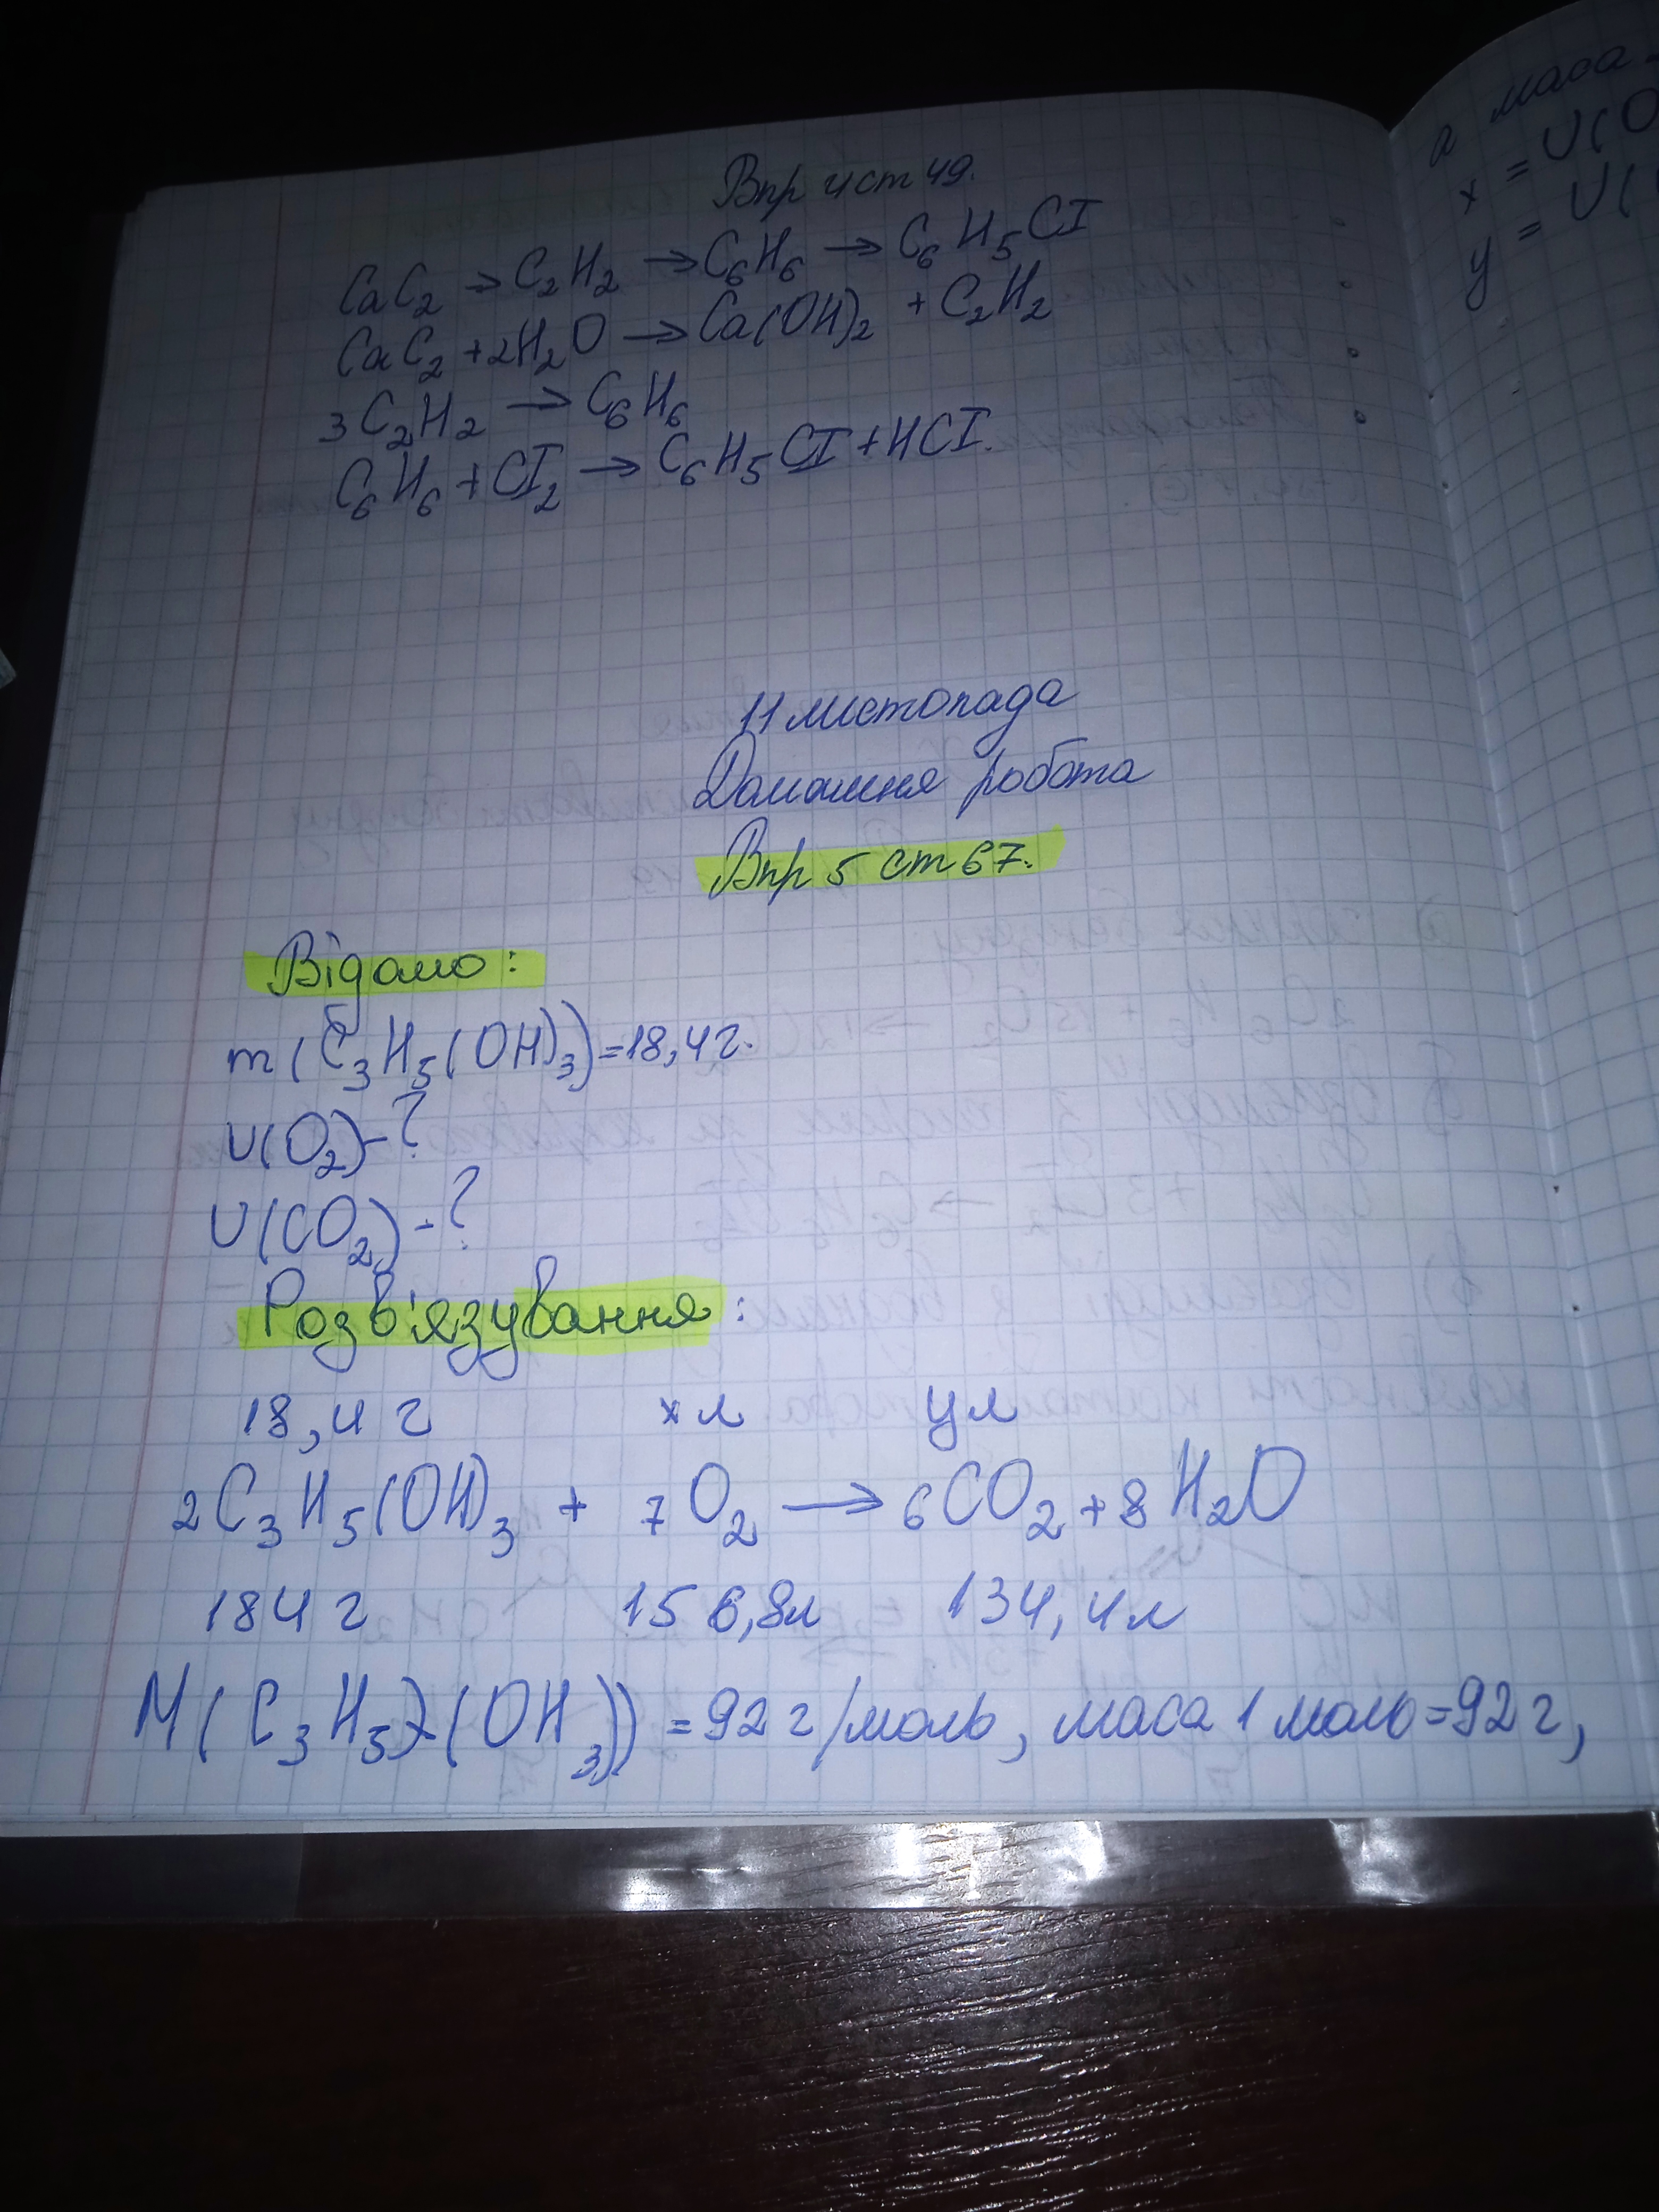 Впр 4 ст 49.
CaC₂ → C₂H₂ → C₆H₆ → C₆H₅CI
CaC₂ + 2H₂O → Ca(OH)₂ + C₂H₂
3C₂H₂ → C₆H₆
C₆H₆ + CI₂ → C₆H₅CI + HCI.
11 листопада
Домашня робота
Впр 5 ст 67.
Відомо:
m(C₃H₅(OH)₃) = 18,4 г.
U(O₂) - ?
U(CO₂) - ?
Розв'язування:
18,4 г х л у л
2C₃H₅(OH)₃ + 7O₂ → 6CO₂ + 8H₂O
184 г 156,8 л 134,4 л
M(C₃H₅)(OH₃)) = 92 г/моль, маса 1 моль = 92 г,
а маса
x = U(O
y = U(